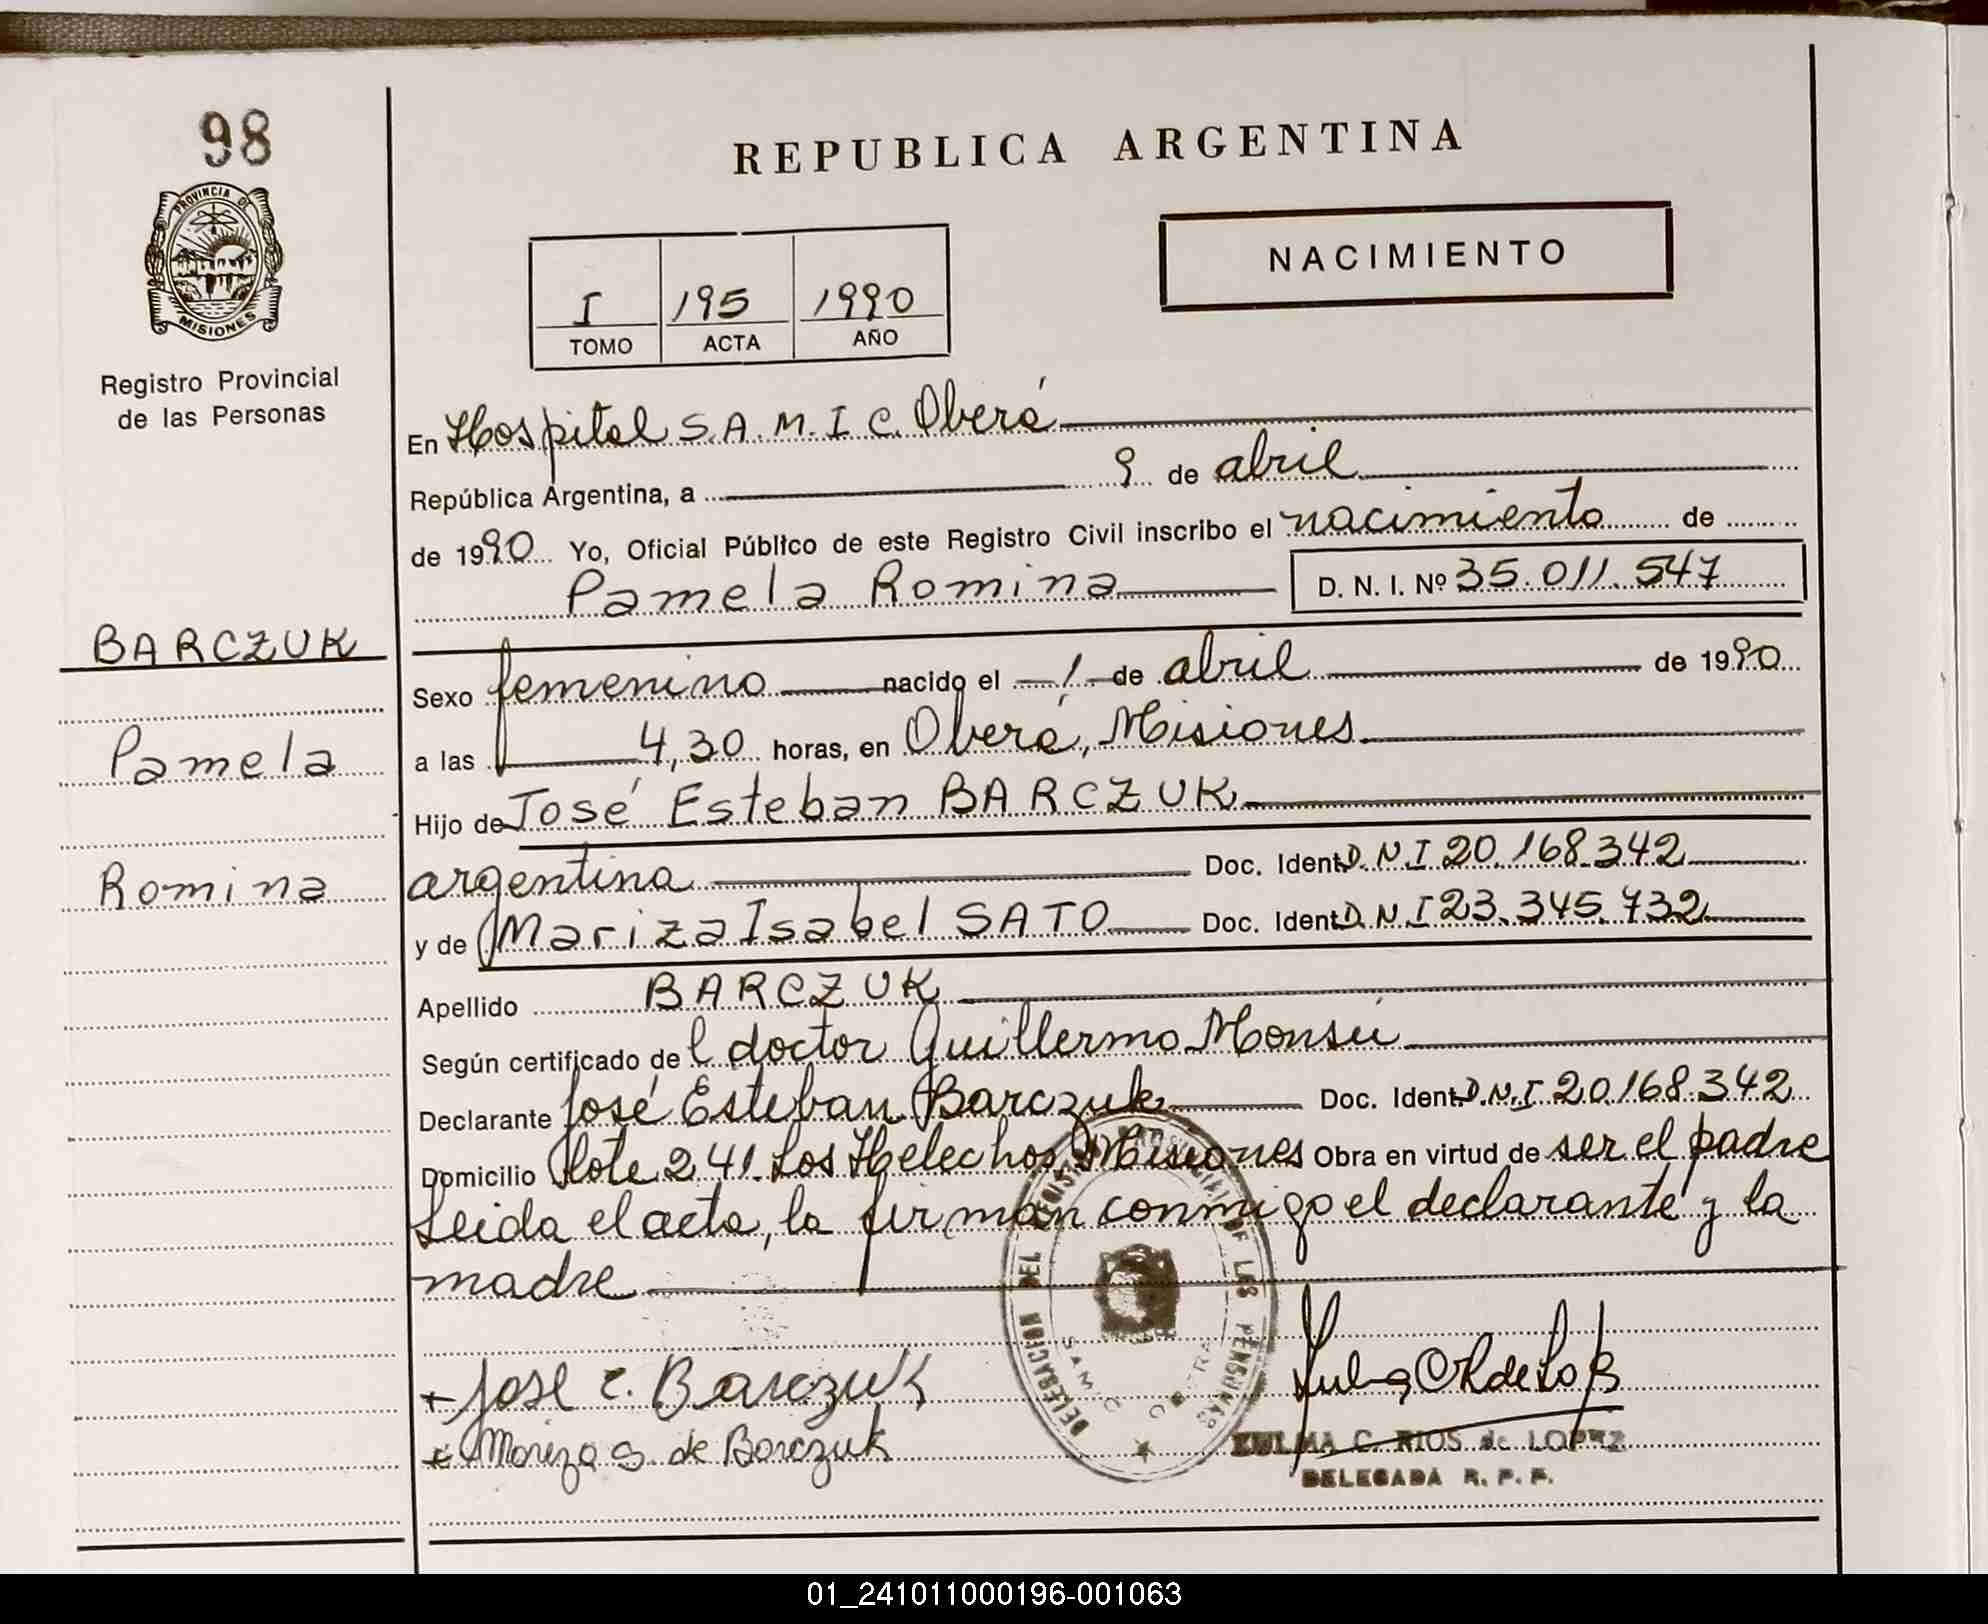 98
PROVINCIA DE
MISIONES
Registro Provincial
de las Personas
REPUBLICA ARGENTINA
I 195 1990
TOMO ACTA AÑO
NACIMIENTO
En Hospital S.A.M.I.C. Oberá
República Argentina, a 9 de abril
de 1990 Yo, Oficial Público de este Registro Civil inscribo el nacimiento de
Pamela Romina D. N. I. Nº 35.011.547
BARCZUK
Sexo femenino nacido el 1 de abril de 1990
Pamela
a las 4,30 horas, en Oberá, Misiones
Hijo de José Esteban BARCZUK
Romina
argentina Doc. Ident. D.N.I 20.168.342
y de Mariza Isabel SATO Doc. Ident. D.N.I 23.345.732
Apellido BARCZUK
Según certificado del doctor Guillermo Monsú
Declarante José Esteban Barczuk Doc. Ident. D.N.I. 20.168.342
Domicilio Lote 241. Los Helechos, Misiones Obra en virtud de ser el padre
Leida el acta, la firman conmigo el declarante y la
madre
DELEGACION DEL REGISTRO PROVINCIAL DE LAS PERSONAS
SAMIC
+ José E. Barczuk
+ Mariza S. de Barczuk
ZULMA C. RIOS de LOPEZ
DELEGADA R. P. P.
01_241011000196-001063